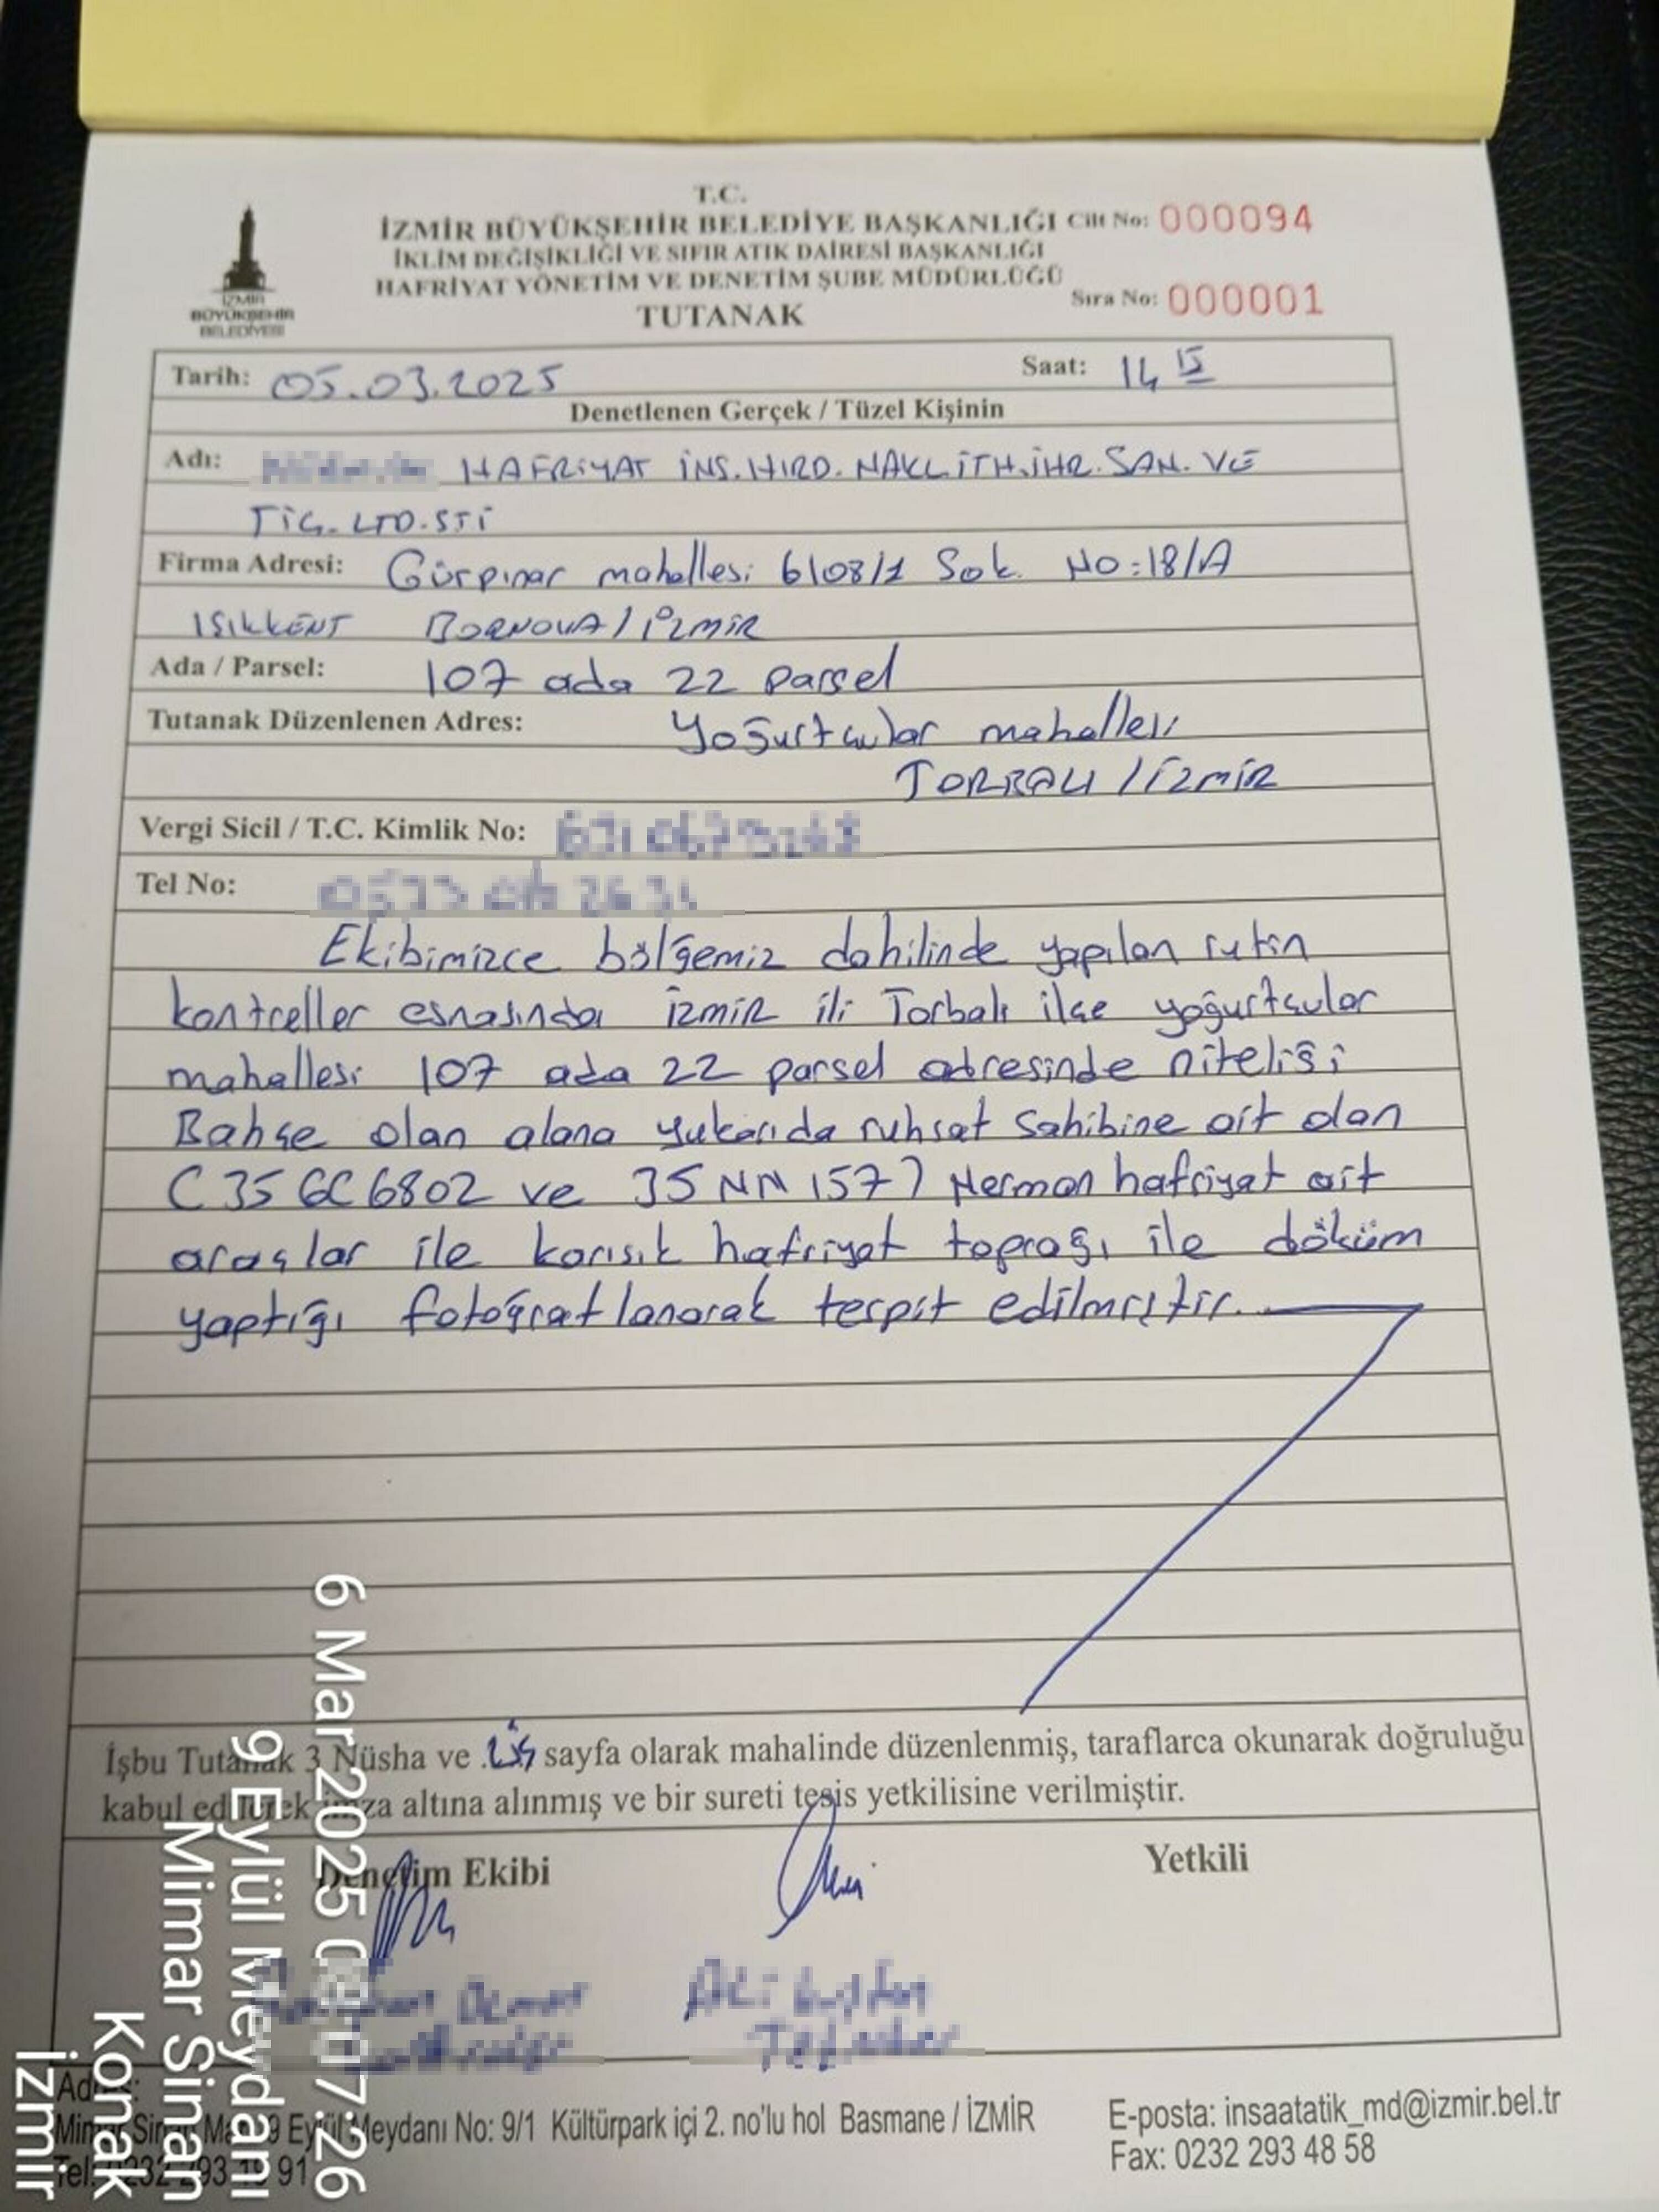 T.C.
İZMİR BÜYÜKŞEHİR BELEDİYE BAŞKANLIĞI Cilt No: 000094
İKLİM DEĞİŞİKLİĞİ VE SIFIR ATIK DAİRESİ BAŞKANLIĞI
HAFRİYAT YÖNETİM VE DENETİM ŞUBE MÜDÜRLÜĞÜ
Sıra No: 000001
TUTANAK
İZMİR
BÜYÜKŞEHİR
BELEDİYESİ
Tarih: 05.03.2025 Saat: 14 15
Denetlenen Gerçek / Tüzel Kişinin
Adı: HAFRİYAT İNS. HIRD. NAKL İTH. İHR. SAN. VE
TİC. LTD. STİ
Firma Adresi: Gürpınar mahallesi 6108/1 Sok. NO:18/A
IŞIKKENT BORNOVA / İZMİR
Ada / Parsel: 107 ada 22 parsel
Tutanak Düzenlenen Adres: Yoğurtçular mahallesi
TORBALI / İZMİR
Vergi Sicil / T.C. Kimlik No:
Tel No:
Ekibimizce bölgemiz dahilinde yapılan rutin
kontroller esnasında İZMİR ili Torbalı ilçe yoğurtçular
mahallesi 107 ada 22 parsel adresinde niteliği
Bahçe olan alana yukarıda ruhsat sahibine ait olan
C 35 GC 6802 ve 35 NN 1577 Nerman hafriyat ait
araçlar ile karışık hafriyat toprağı ile döküm
yaptığı fotoğraflanarak tespit edilmiştir.
İşbu Tutanak 3 Nüsha ve üç sayfa olarak mahalinde düzenlenmiş, taraflarca okunarak doğruluğu
kabul edilerek imza altına alınmış ve bir sureti tesis yetkilisine verilmiştir.
Denetim Ekibi Yetkili
Adres:
Mimar Sinan Mah. 9 Eylül Meydanı No: 9/1 Kültürpark içi 2. no'lu hol Basmane / İZMİR
Tel: 0232 293 19 91
E-posta: insaatatik_md@izmir.bel.tr
Fax: 0232 293 48 58
6 Mar 2025 07:26
9 Eylül Meydanı
Mimar Sinan
Konak
İzmir